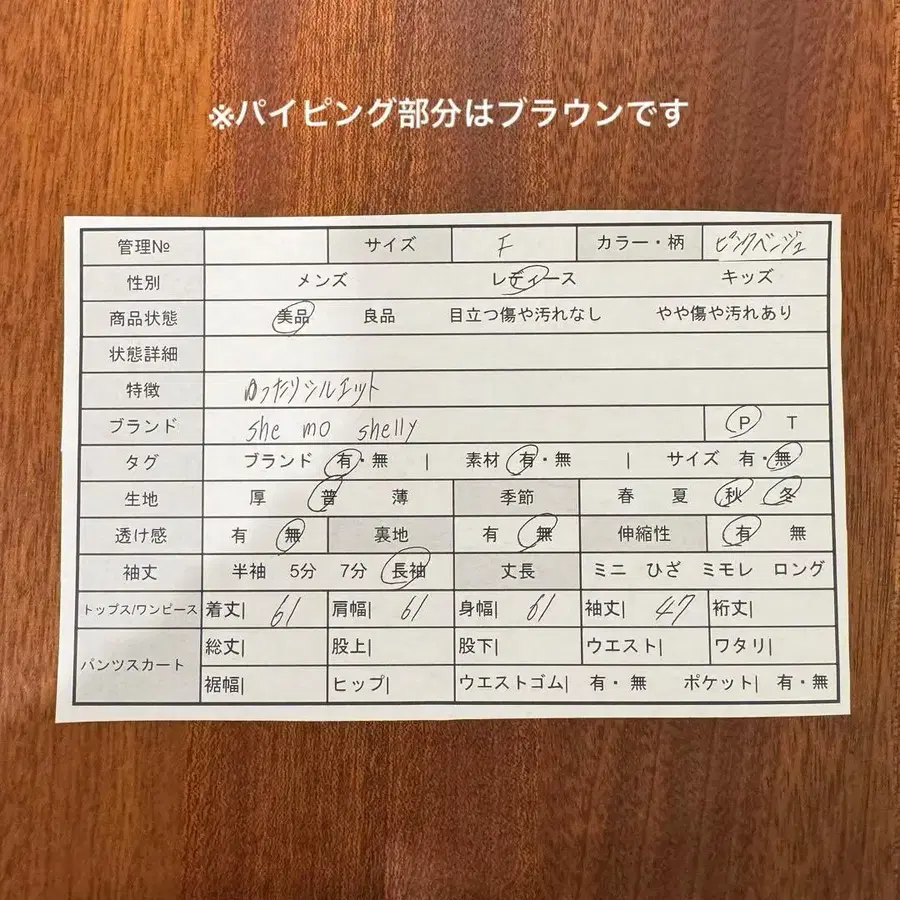 ※パイピング部分はブラウンです
管理№ サイズ F カラー・柄 ピンクベージュ
性別 メンズ レディース キッズ
商品状態 美品 良品 目立つ傷や汚れなし やや傷や汚れあり
状態詳細
特徴 ゆったりシルエット
ブランド she mo shelly P T
タグ ブランド 有・無 | 素材 有・無 | サイズ 有・無
生地 厚 普 薄 季節 春 夏 秋 冬
透け感 有 無 裏地 有 無 伸縮性 有 無
袖丈 半袖 5分 7分 長袖 丈長 ミニ ひざ ミモレ ロング
トップス/ワンピース 着丈| 61 肩幅| 61 身幅| 61 袖丈| 47 裄丈|
パンツスカート 総丈| 股上| 股下| ウエスト| ワタリ|
裾幅| ヒップ| ウエストゴム| 有・無 ポケット| 有・無